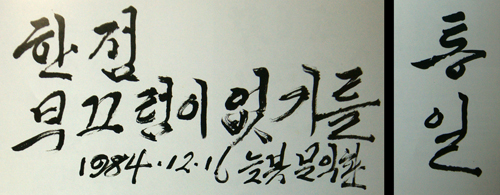 한 점
부끄럼이 없기를
1984.12.16 늦봄 문익환
통일